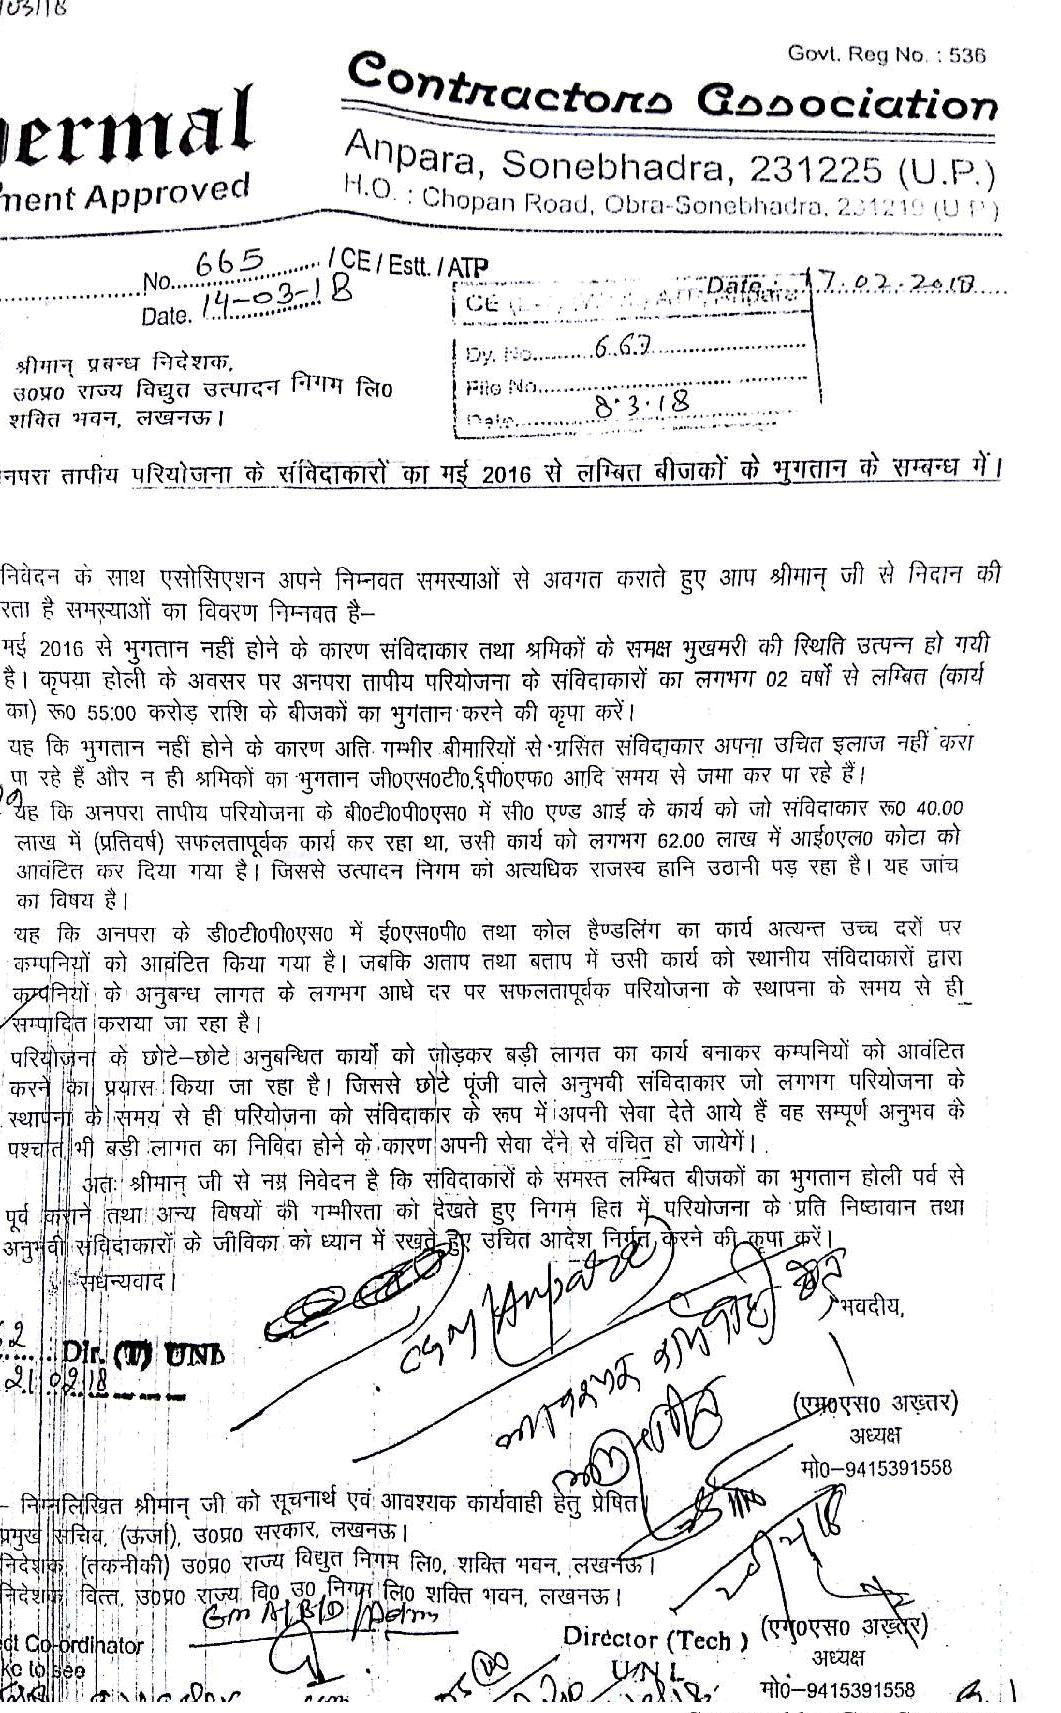 Govt. Reg No. : 536
Contractors Association
ermal
ment Approved
Anpara, Sonebhadra, 231225 (U.P.)
H.O. : Chopan Road, Obra-Sonebhadra, 231219 (U.P.)
No. 665 / CE / Estt. / ATP
Date. 14-03-18
Date : 17.02.2018
CE
Dy. No. 667
File No.
Date. 8.3.18
श्रीमान् प्रबन्ध निदेशक,
उ०प्र० राज्य विद्युत उत्पादन निगम लि०
शक्ति भवन, लखनऊ।
नपरा तापीय परियोजना के संविदाकारों का मई 2016 से लम्बित बीजकों के भुगतान के सम्बन्ध में।
निवेदन के साथ एसोसिएशन अपने निम्नवत समस्याओं से अवगत कराते हुए आप श्रीमान् जी से निदान की
रता है समस्याओं का विवरण निम्नवत है–
मई 2016 से भुगतान नहीं होने के कारण संविदाकार तथा श्रमिकों के समक्ष भुखमरी की स्थिति उत्पन्न हो गयी
है। कृपया होली के अवसर पर अनपरा तापीय परियोजना के संविदाकारों का लगभग 02 वर्षो से लम्बित (कार्य
का) रू0 55:00 करोड़ राशि के बीजकों का भुगतान करने की कृपा करें।
यह कि भुगतान नहीं होने के कारण अति गम्भीर बीमारियों से ग्रसित संविदाकार अपना उचित इलाज नहीं करा
पा रहे हैं और न ही श्रमिकों का भुगतान जी०एस०टी०,ई०पी०एफ० आदि समय से जमा कर पा रहे हैं।
यह कि अनपरा तापीय परियोजना के बी०टी०पी०एस० में सी० एण्ड आई के कार्य को जो संविदाकार रू० 40.00
लाख में (प्रतिवर्ष) सफलतापूर्वक कार्य कर रहा था, उसी कार्य को लगभग 62.00 लाख में आई०एल० कोटा को
आवंटित कर दिया गया है। जिससे उत्पादन निगम को अत्यधिक राजस्व हानि उठानी पड़ रहा है। यह जांच
का विषय है।
यह कि अनपरा के डी०टी०पी०एस० में ई०एस०पी० तथा कोल हैण्डलिंग का कार्य अत्यन्त उच्च दरों पर
कम्पनियों को आवंटित किया गया है। जबकि अताप तथा बताप में उसी कार्य को स्थानीय संविदाकारों द्वारा
कम्पनियों के अनुबन्ध लागत के लगभग आधे दर पर सफलतापूर्वक परियोजना के स्थापना के समय से ही
सम्पादित कराया जा रहा है।
परियोजना के छोटे–छोटे अनुबन्धित कार्यो को जोड़कर बड़ी लागत का कार्य बनाकर कम्पनियों को आवंटित
करने का प्रयास किया जा रहा है। जिससे छोटे पूंजी वाले अनुभवी संविदाकार जो लगभग परियोजना के
स्थापना के समय से ही परियोजना को संविदाकार के रूप में अपनी सेवा देते आये हैं वह सम्पूर्ण अनुभव के
पश्चात भी बड़ी लागत का निविदा होने के कारण अपनी सेवा देंने से वंचित हो जायेगें।
अतः श्रीमान् जी से नम्र निवेदन है कि संविदाकारों के समस्त लम्बित बीजकों का भुगतान होली पर्व से
पूर्व कराने तथा अन्य विषयों की गम्भीरता को देखते हुए निगम हित में परियोजना के प्रति निष्ठावान तथा
अनुभवी संविदाकारों के जीविका को ध्यान में रखते हुए उचित आदेश निर्गत करने की कृपा करें।
सधन्यवाद।
CGM Anpara
आवश्यक कार्यवाही
भवदीय,
Dir. (T) UNL
21 02 18
(एम०एस० अख़्तर)
अध्यक्ष
मो०–9415391558
- निम्नलिखित श्रीमान् जी को सूचनार्थ एवं आवश्यक कार्यवाही हेतु प्रेषित
प्रमुख सचिव, (ऊर्जा), उ०प्र० सरकार, लखनऊ।
निदेशक (तकनीकी) उ०प्र० राज्य विद्युत निगम लि०, शक्ति भवन, लखनऊ।
निदेशक वित्त, उ०प्र० राज्य वि० उ० निगम लि० शक्ति भवन, लखनऊ।
ct Co-ordinator
Director (Tech )
UNL
(एम०एस० अख़्तर)
अध्यक्ष
मो०–9415391558